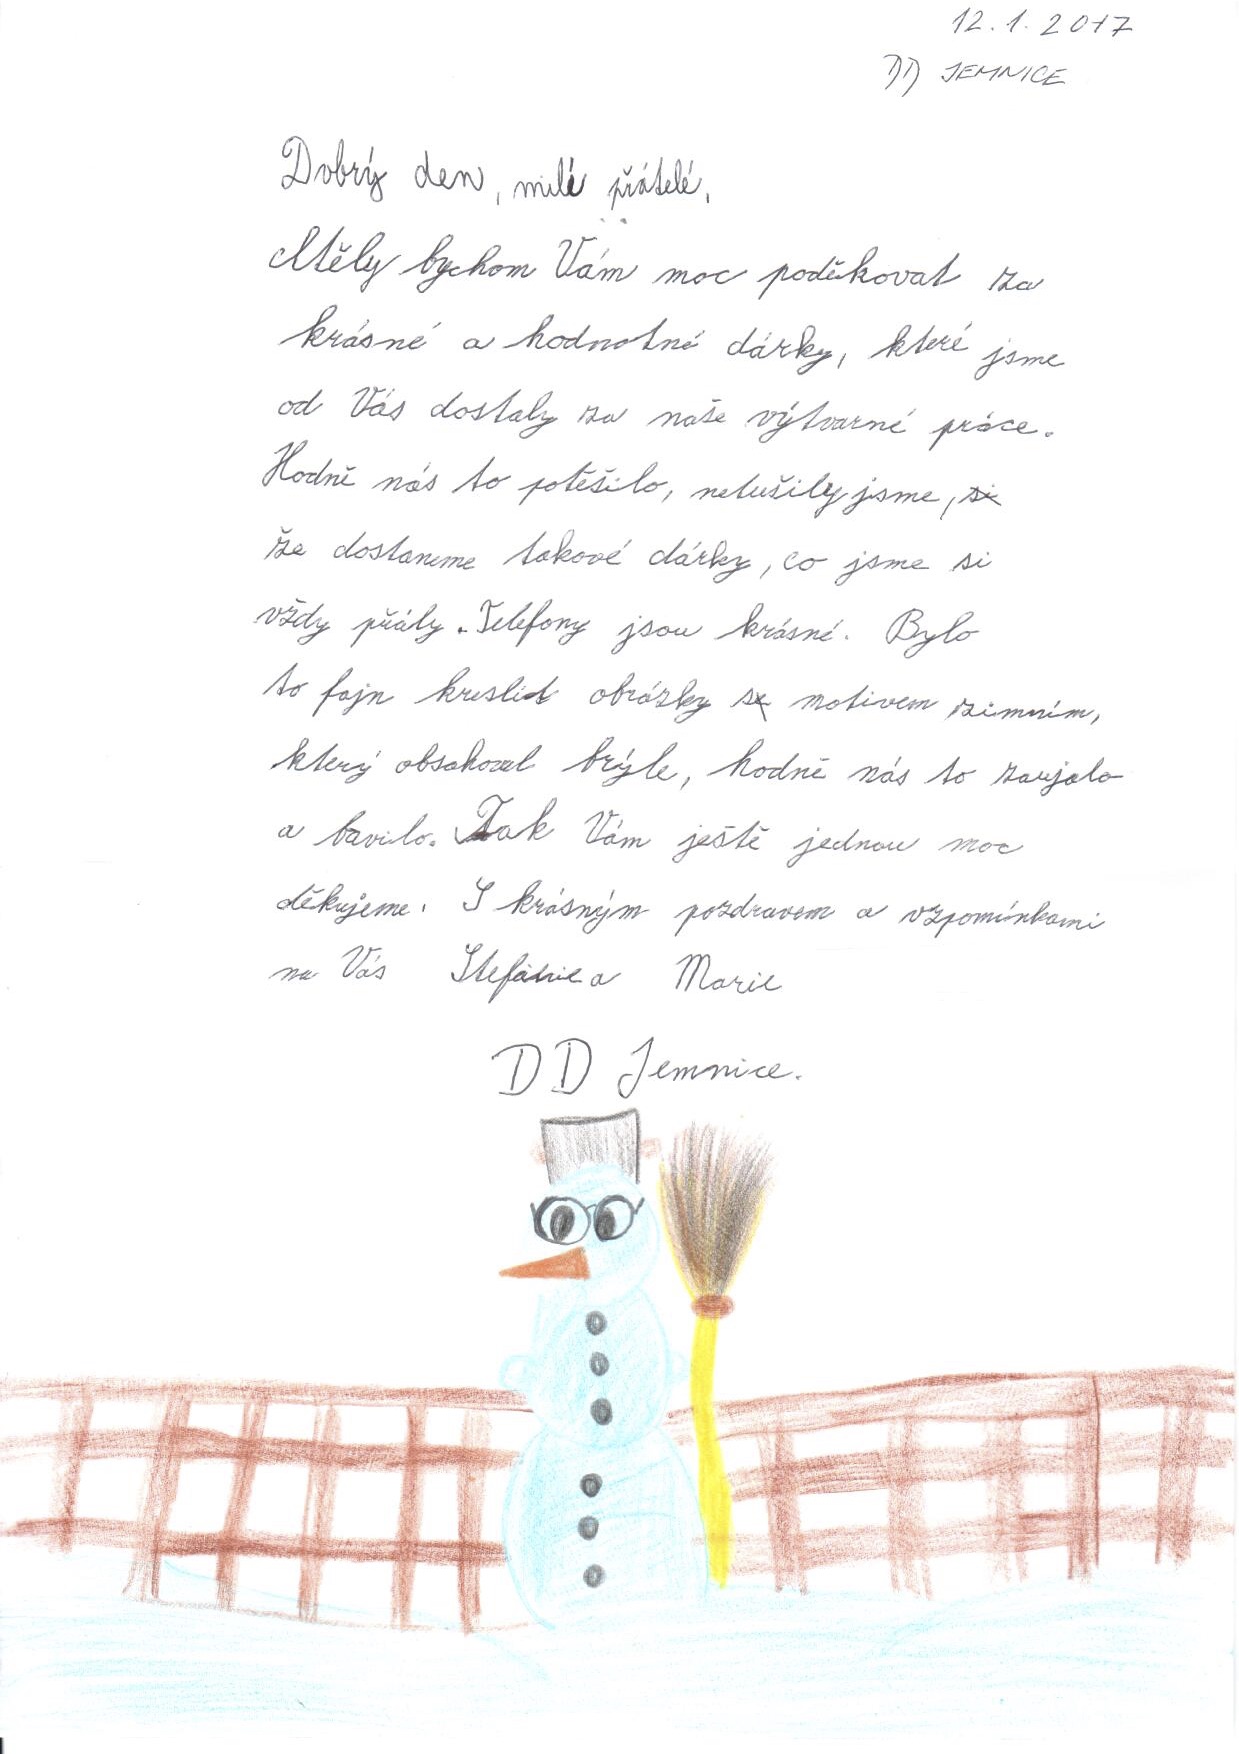 12.1.2017
DD JEMNICE
Dobrý den, milé přátelé,
chtěly bychom Vám moc poděkovat za
krásné a hodnotné dárky, které jsme
od Vás dostaly za naše výtvarné práce.
Hodně nás to potěšilo, netušily jsme, si
že dostaneme takové dárky, co jsme si
vždy přály. Telefony jsou krásné. Bylo
to fajn kreslit obrázky se motivem zimním,
který obsahoval brýle, hodně nás to zaujalo
a bavilo. Tak Vám ještě jednou moc
děkujeme. S krásným pozdravem a vzpomínkami
na Vás Stefánie a Marie
DD Jemnice.